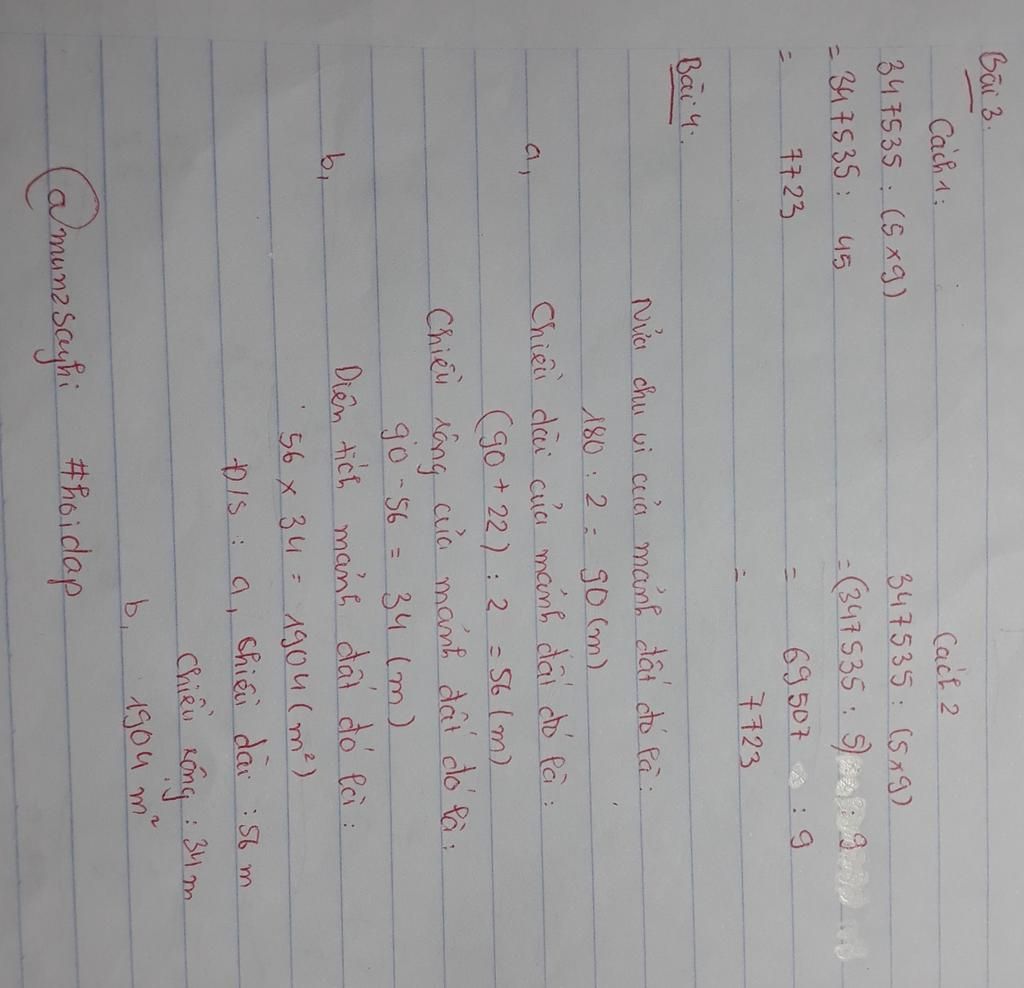 Bài 3.
Cách 1:
347535 : (5 x 9)
= 347535 : 45
= 7723
Cách 2
347535 : (5x9)
= (347535 : 5) : 9
= 69507 : 9
= 7723
Bài 4.
Nửa chu vi của mảnh đất đó là:
180 : 2 = 90 (m)
a, Chiều dài của mảnh đất đó là:
(90 + 22) : 2 = 56 (m)
Chiều rộng của mảnh đất đó là:
90 - 56 = 34 (m)
b, Diện tích mảnh đất đó là:
56 x 34 = 1904 (m²)
Đ/S : a, Chiều dài : 56 m
Chiều rộng : 34 m
b, 1904 m²
@munzsayhi #hoidap